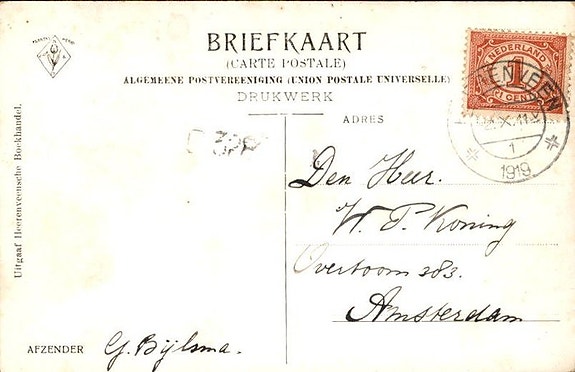 BRIEFKAART
(CARTE POSTALE)
ALGEMEENE POSTVEREENIGING (UNION POSTALE UNIVERSELLE)
DRUKWERK
ADRES
NEDERLAND
1
CENT
1
1919
Den Heer.
W. P. Koning
Overtoom 283.
Amsterdam
AFZENDER G. Bijlsma.
Uitgaaf Heerenveensche Boekhandel.